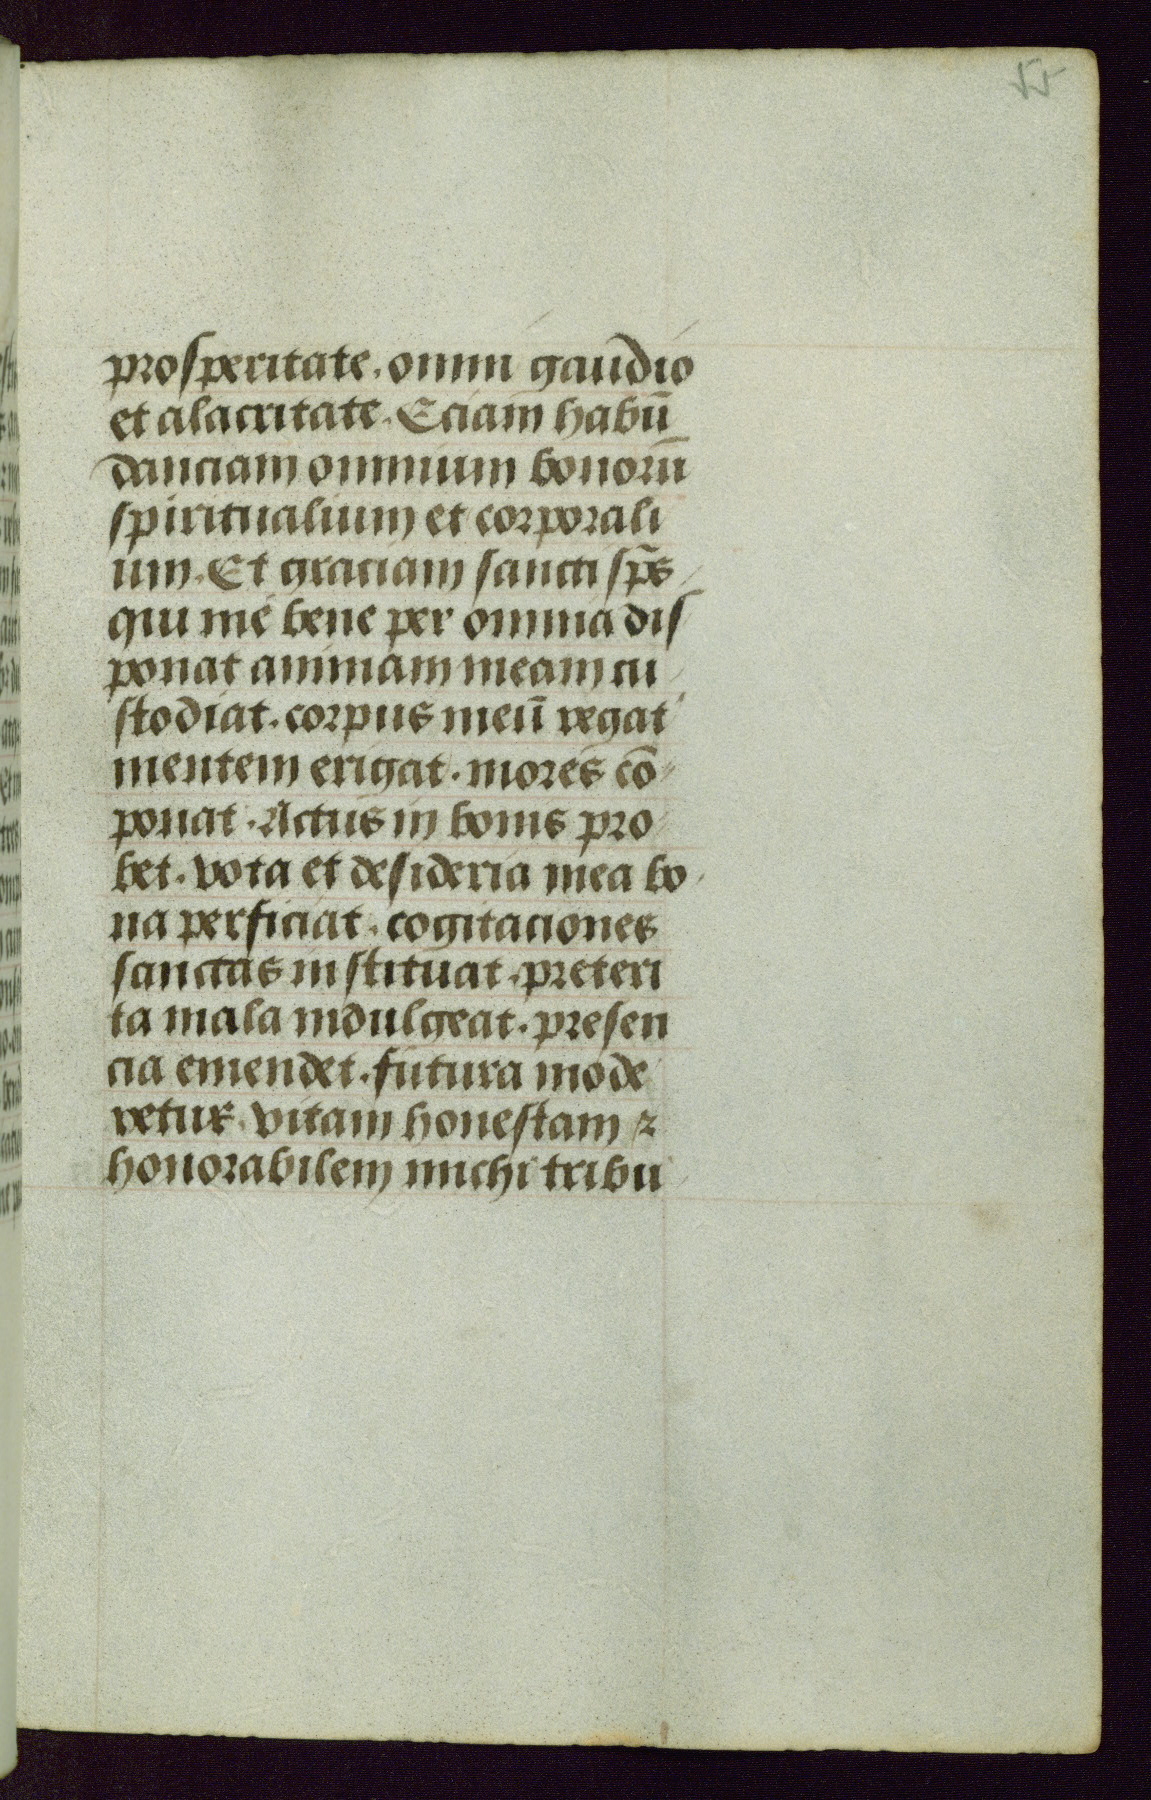 55
prosperitate. omni gaudio
et alacritate. Eciam habū
danciam omnium bonorū
spiritualium et corporali
um. Et graciam sancti sp̄s
qui me bene per omnia dis
ponat animam meam cu
stodiat. corpus meū regat
mentem erigat. mores cō
ponat. Actus in bonis pro
bet. vota et desideria mea bo
na perficiat. cogitaciones
sanctas instituat. preteri
ta mala indulgeat. presen
cia emendet. futura mode
retur. vitam honestam ⁊
honorabilem michi tribu